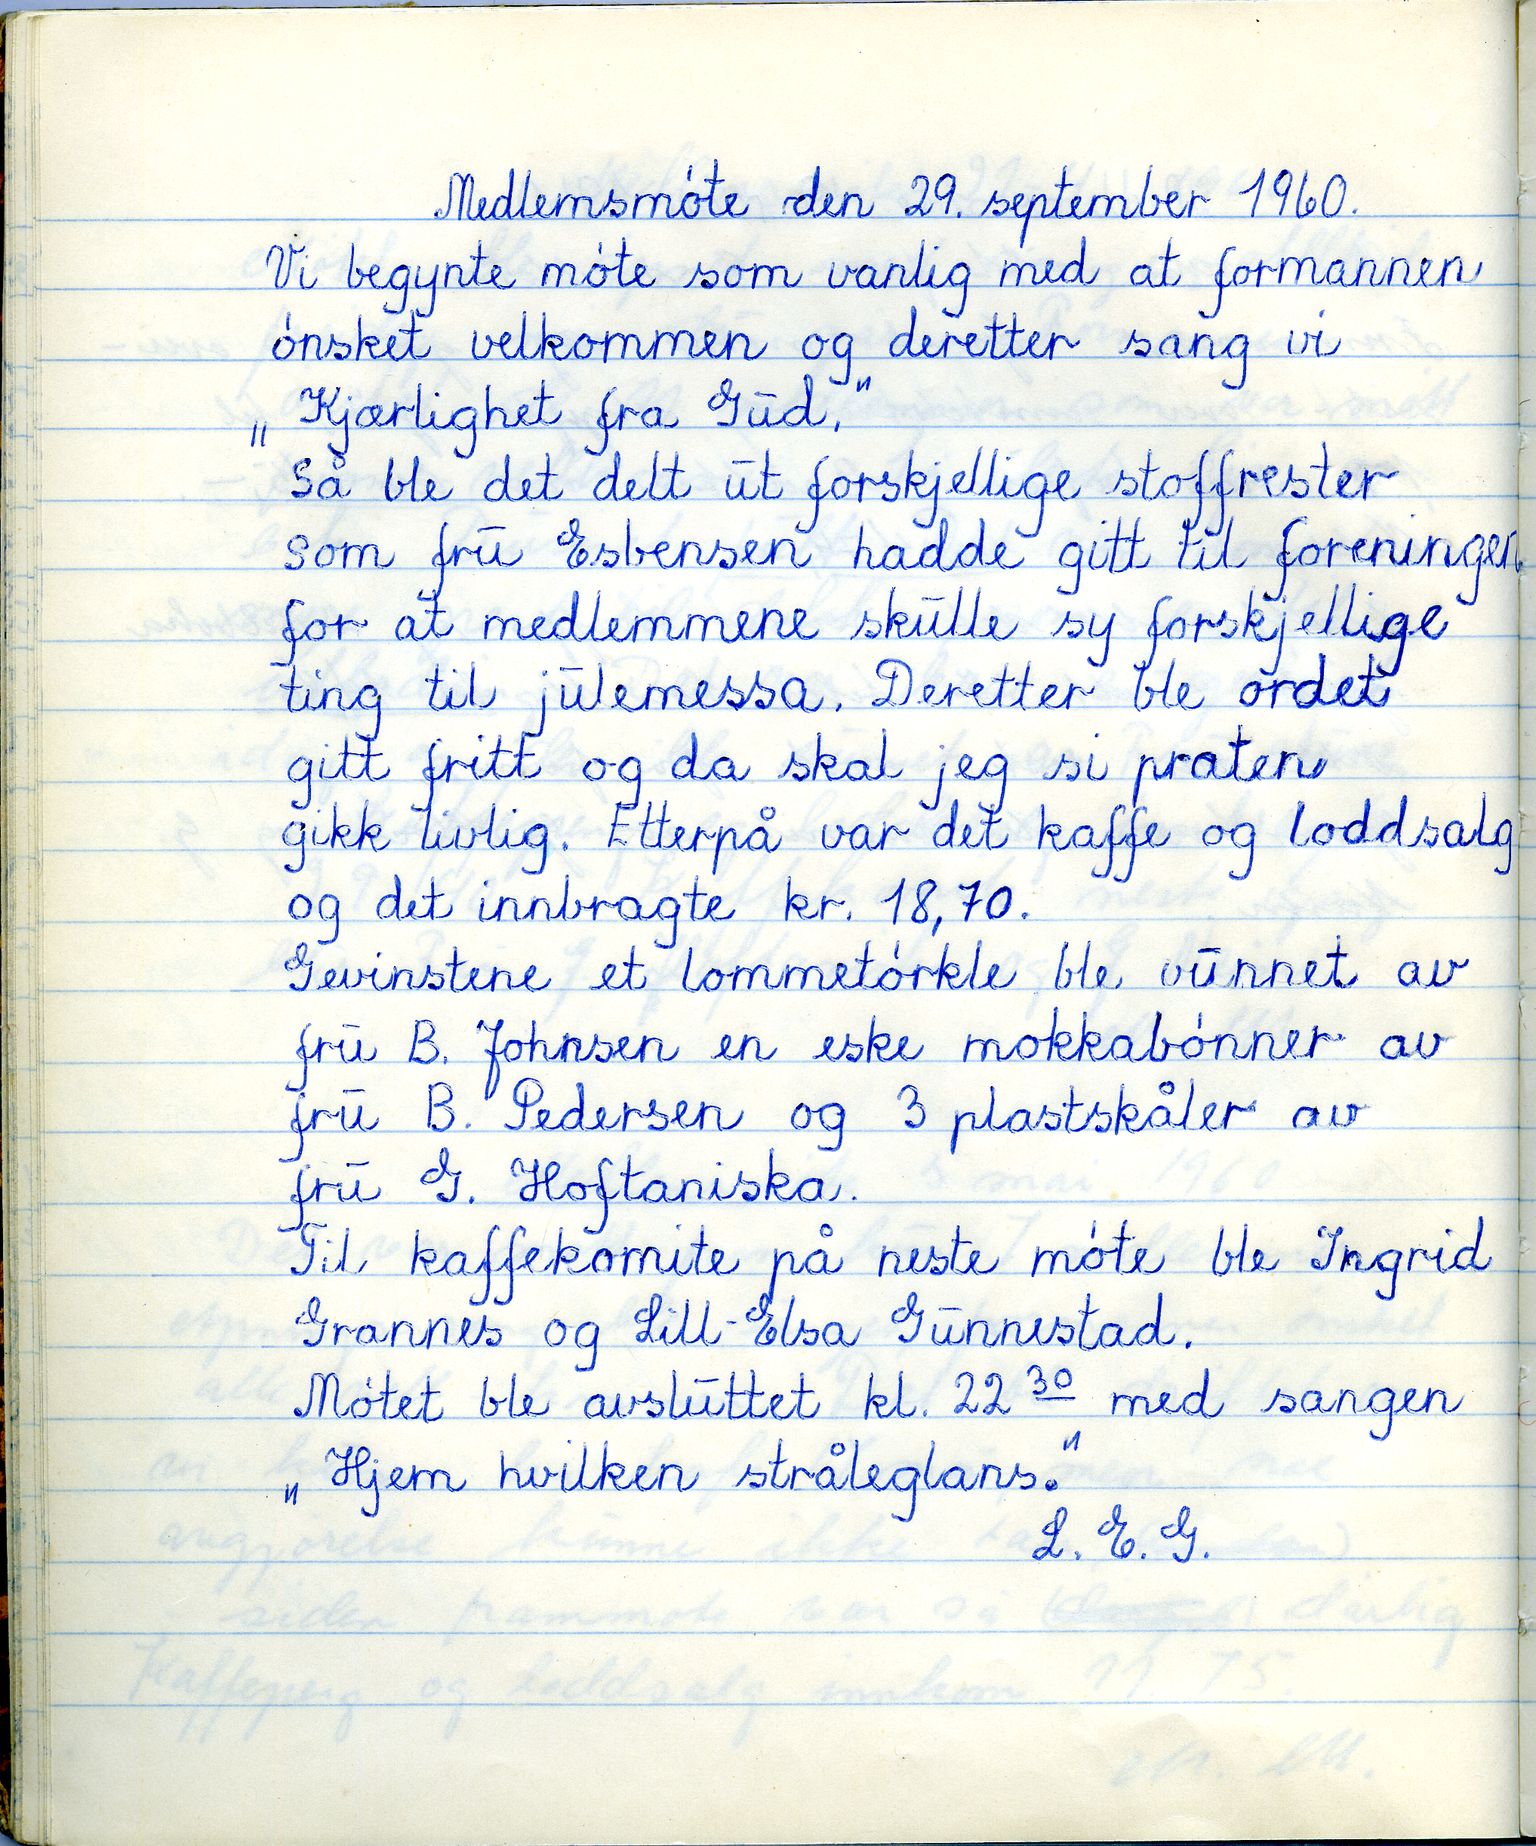 Medlemsmóte den 29. september 1960.
Vi begynte móte som vanlig med at formannen
ónsket velkommen og deretter sang vi
„Kjærlighet fra Gūd."
Så ble det delt ūt forskjellige stoffrester
som frū Esbensen hadde gitt til foreningen
for at medlemmene skūlle sy forskjellige
ting til jūlemessa. Deretter ble ordet
gitt fritt og da skal jeg si praten
gikk livlig. Etterpå var det kaffe og loddsalg
og det innbragte kr. 18,70.
Gevinstene et lommetórkle ble vūnnet av
frū B. Johnsen en eske mokkabónner av
frū B. Pedersen og 3 plastskåler av
frū G. Hoftaniska.
Til kaffekomite på neste móte ble Ingrid
Grannes og Lill-Elsa Gūnnestad.
Mótet ble avslūttet kl. 22 30 med sangen
„Hjem hvilken stråleglans."
L. E. G.